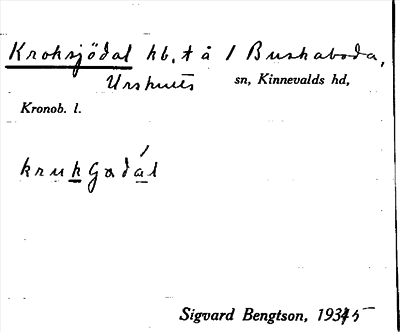 Kroksjödal hb. t å 1 Buskaboda,
Urshults sn, Kinnevalds hd,
Kronob. l.
krukʃadál
Sigvard Bengtson, 1935